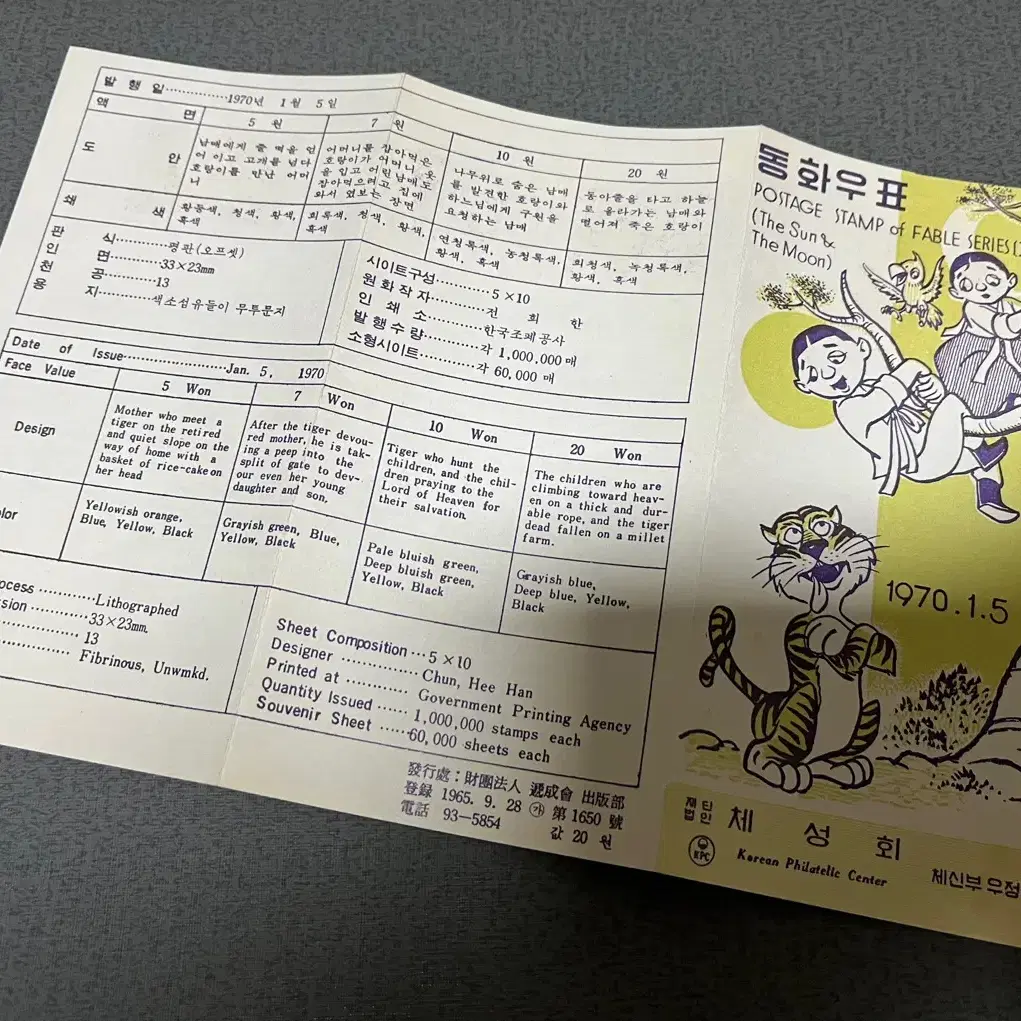 발 행 일……………1970년 1월 5일
액 면
5 원
7 원
10 원
20 원
도 안
남매에게 줄 떡을 얻
어 이고 고개를 넘다
호랑이를 만난 어머
니
어머니를 잡아먹은
호랑이가 어머니 옷
을 입고 어린남매도
잡아먹으려고 집에
와서 엿보는 장면
나무위로 숨은 남매
를 발견한 호랑이와
하느님에게 구원을
요청하는 남매
동아줄을 타고 하늘
로 올라가는 남매와
떨어져 죽은 호랑이
쇄 색
황동색, 청색, 황색,
흑색
회록색, 청색, 황색,
흑색
연청록색, 농청록색,
황색, 흑색
회청색, 녹청록색,
황색, 흑색
판 식…………평판(오프셋)
인 면…………33×23mm
천 공…………13
용 지…………색소섬유들이 무투문지
시이트구성…………5×10
원 화 작 자…………전 희 한
인 쇄 소…………한국조폐공사
발 행 수 량…………각 1,000,000매
소형시이트…………각 60,000 매
Date of Issue……………………Jan. 5, 1970
Face Value
5 Won
7 Won
10 Won
20 Won
Design
Mother who meet a
tiger on the retired
and quiet slope on the
way of home with a
basket of rice-cake on
her head
After the tiger devou-
red mother, he is tak-
ing a peep into the
split of gate to dev-
our even her young
daughter and son,
Tiger who hunt the
children, and the chil-
dren praying to the
Lord of Heaven for
their salvation.
The children who are
climbing toward heav-
en on a thick and dur-
able rope, and the tiger
dead fallen on a millet
farm.
olor
Yellowish orange,
Blue, Yellow, Black
Grayish green, Blue,
Yellow, Black
Pale bluish green,
Deep bluish green,
Yellow, Black
Grayish blue,
Deep blue, Yellow,
Black
ocess …………Lithographed
sion …………33×23mm.
………… 13
………… Fibrinous, Unwmkd.
Sheet Composition …5×10
Designer …………Chun, Hee Han
Printed at ………… Government Printing Agency
Quantity Issued …… 1,000,000 stamps each
Souvenir Sheet ……60,000 sheets each
發行處：財團法人 遞成會 出版部
登録 1965. 9. 28 ㉮ 第 1650 號
電話 93—5854
값 20 원
동화우표
POSTAGE STAMP of FABLE SERIES(
(The Sun &
The Moon)
1970.1.5
재단
법인 체 성 회
KPC
Korean Philatelic Center
체신부 우정